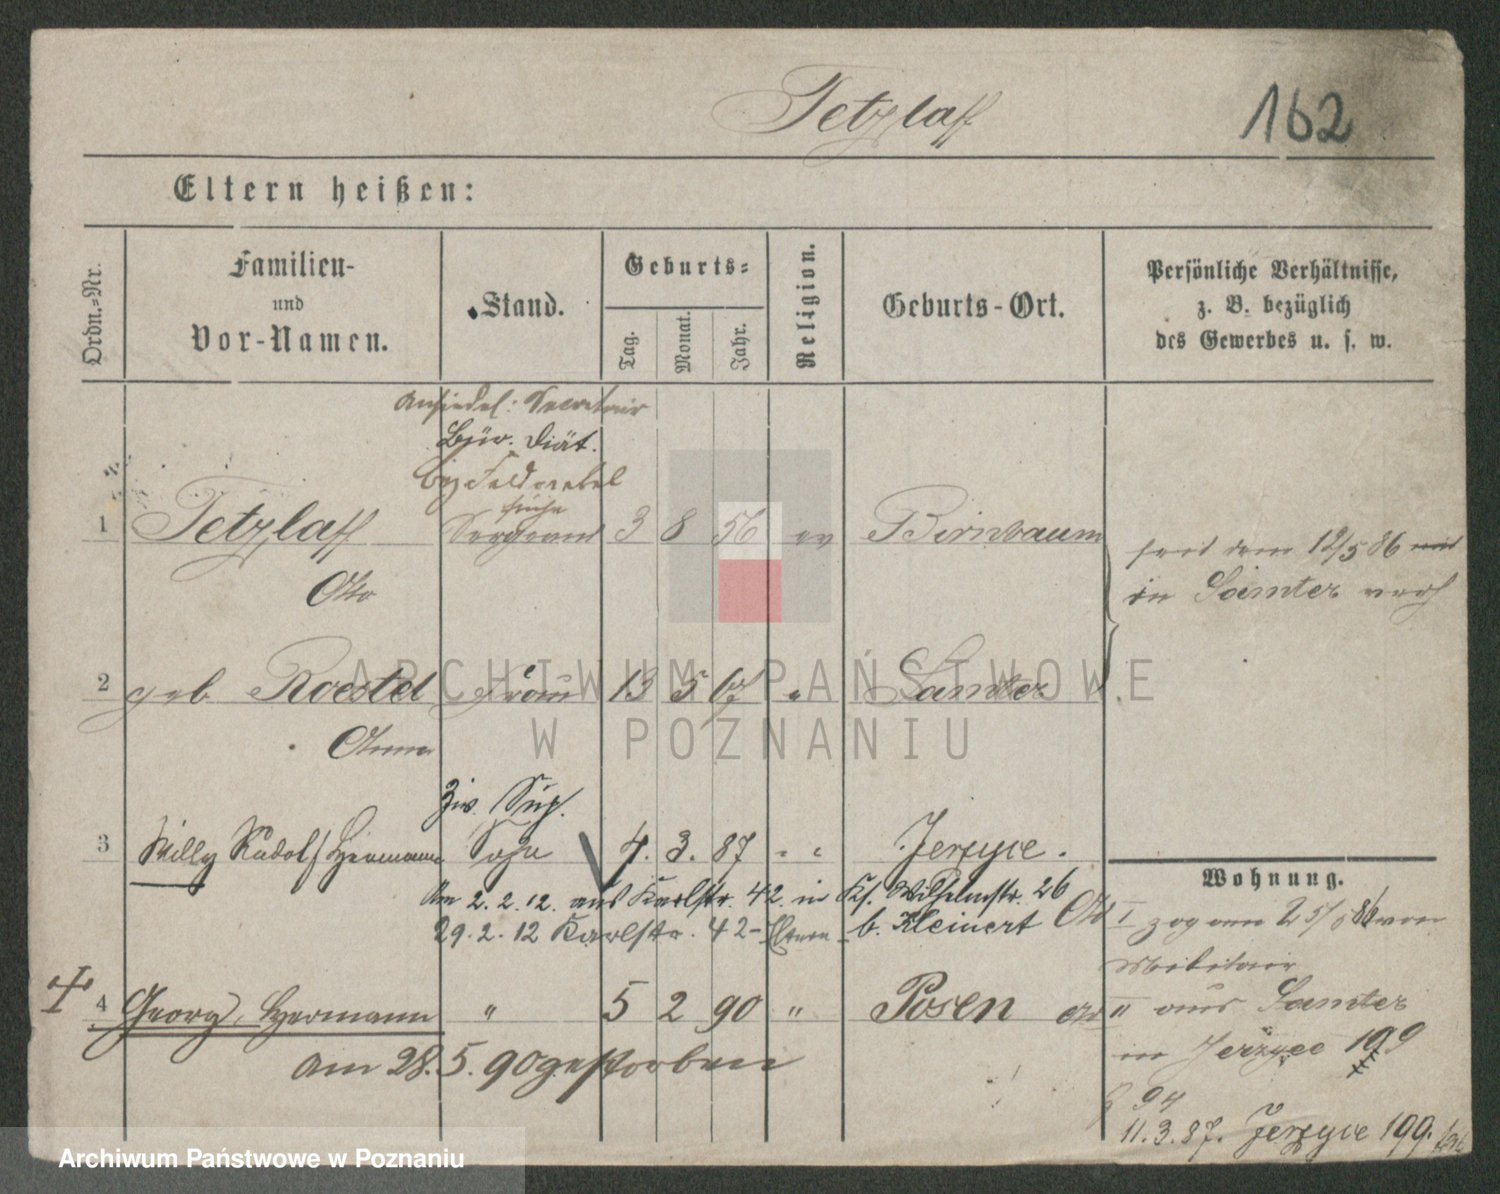 Tetzlaff
162
Eltern heißen:
Ordn.-Nr.
Familien-
und
Vor-Namen.
Stand.
Geburts-
Tag.
Monat.
Jahr.
Religion.
Geburts-Ort.
Persönliche Verhältnisse,
z. B. bezüglich
des Gewerbes u. s. w.
Ansiedel: Secretair
Bür. Diät.
Feldwebel
früher
1 Tetzlaff Sergeant 3 8 56 ev Birnbaum
Otto
seit dem 12/5 86
in Samter verh
2 geb. Roestel Frau 13 5 Samter
Anna
Ziv. Sup.
3 Willy Rudolf Hermann Sohn 4. 3. 87 " " Jerzyce.
Am 2. 2. 12. aus Karlstr. 42. in Wilhelmstr. 26
29. 2. 12 Karlstr. 42 - Eltern - b. Kleinert
Wohnung.
I zog am 25/5 86 von
Militair
4 Georg, Hermann " 5 2 90 " Posen
am 28. 5. 90 gestorben
" aus Samter
in Jerzyce 199
94
11. 3. 87. Jerzyce 199.
ARCHIWUM PAŃSTWOWE
W POZNANIU
Archiwum Państwowe w Poznaniu